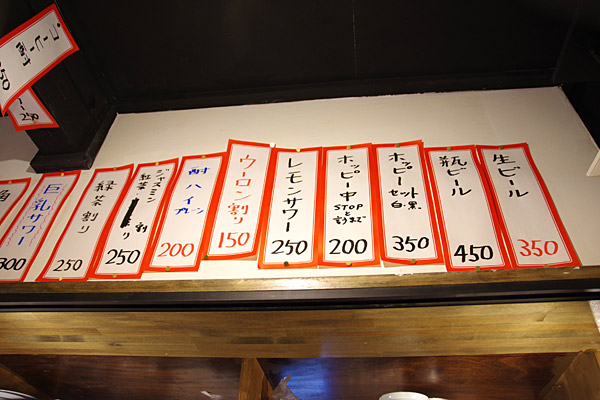 生ビール
350
瓶ビール
450
ホッピー
セット
白・黒
350
ホッピー中
STOP
と
言うまで
200
レモンサワー
250
ウーロン割り
150
酎ハイ
200
ジャスミン
紅茶 割り
250
緑茶割り
250
巨乳サワー
300
角
コーヒー酎
250